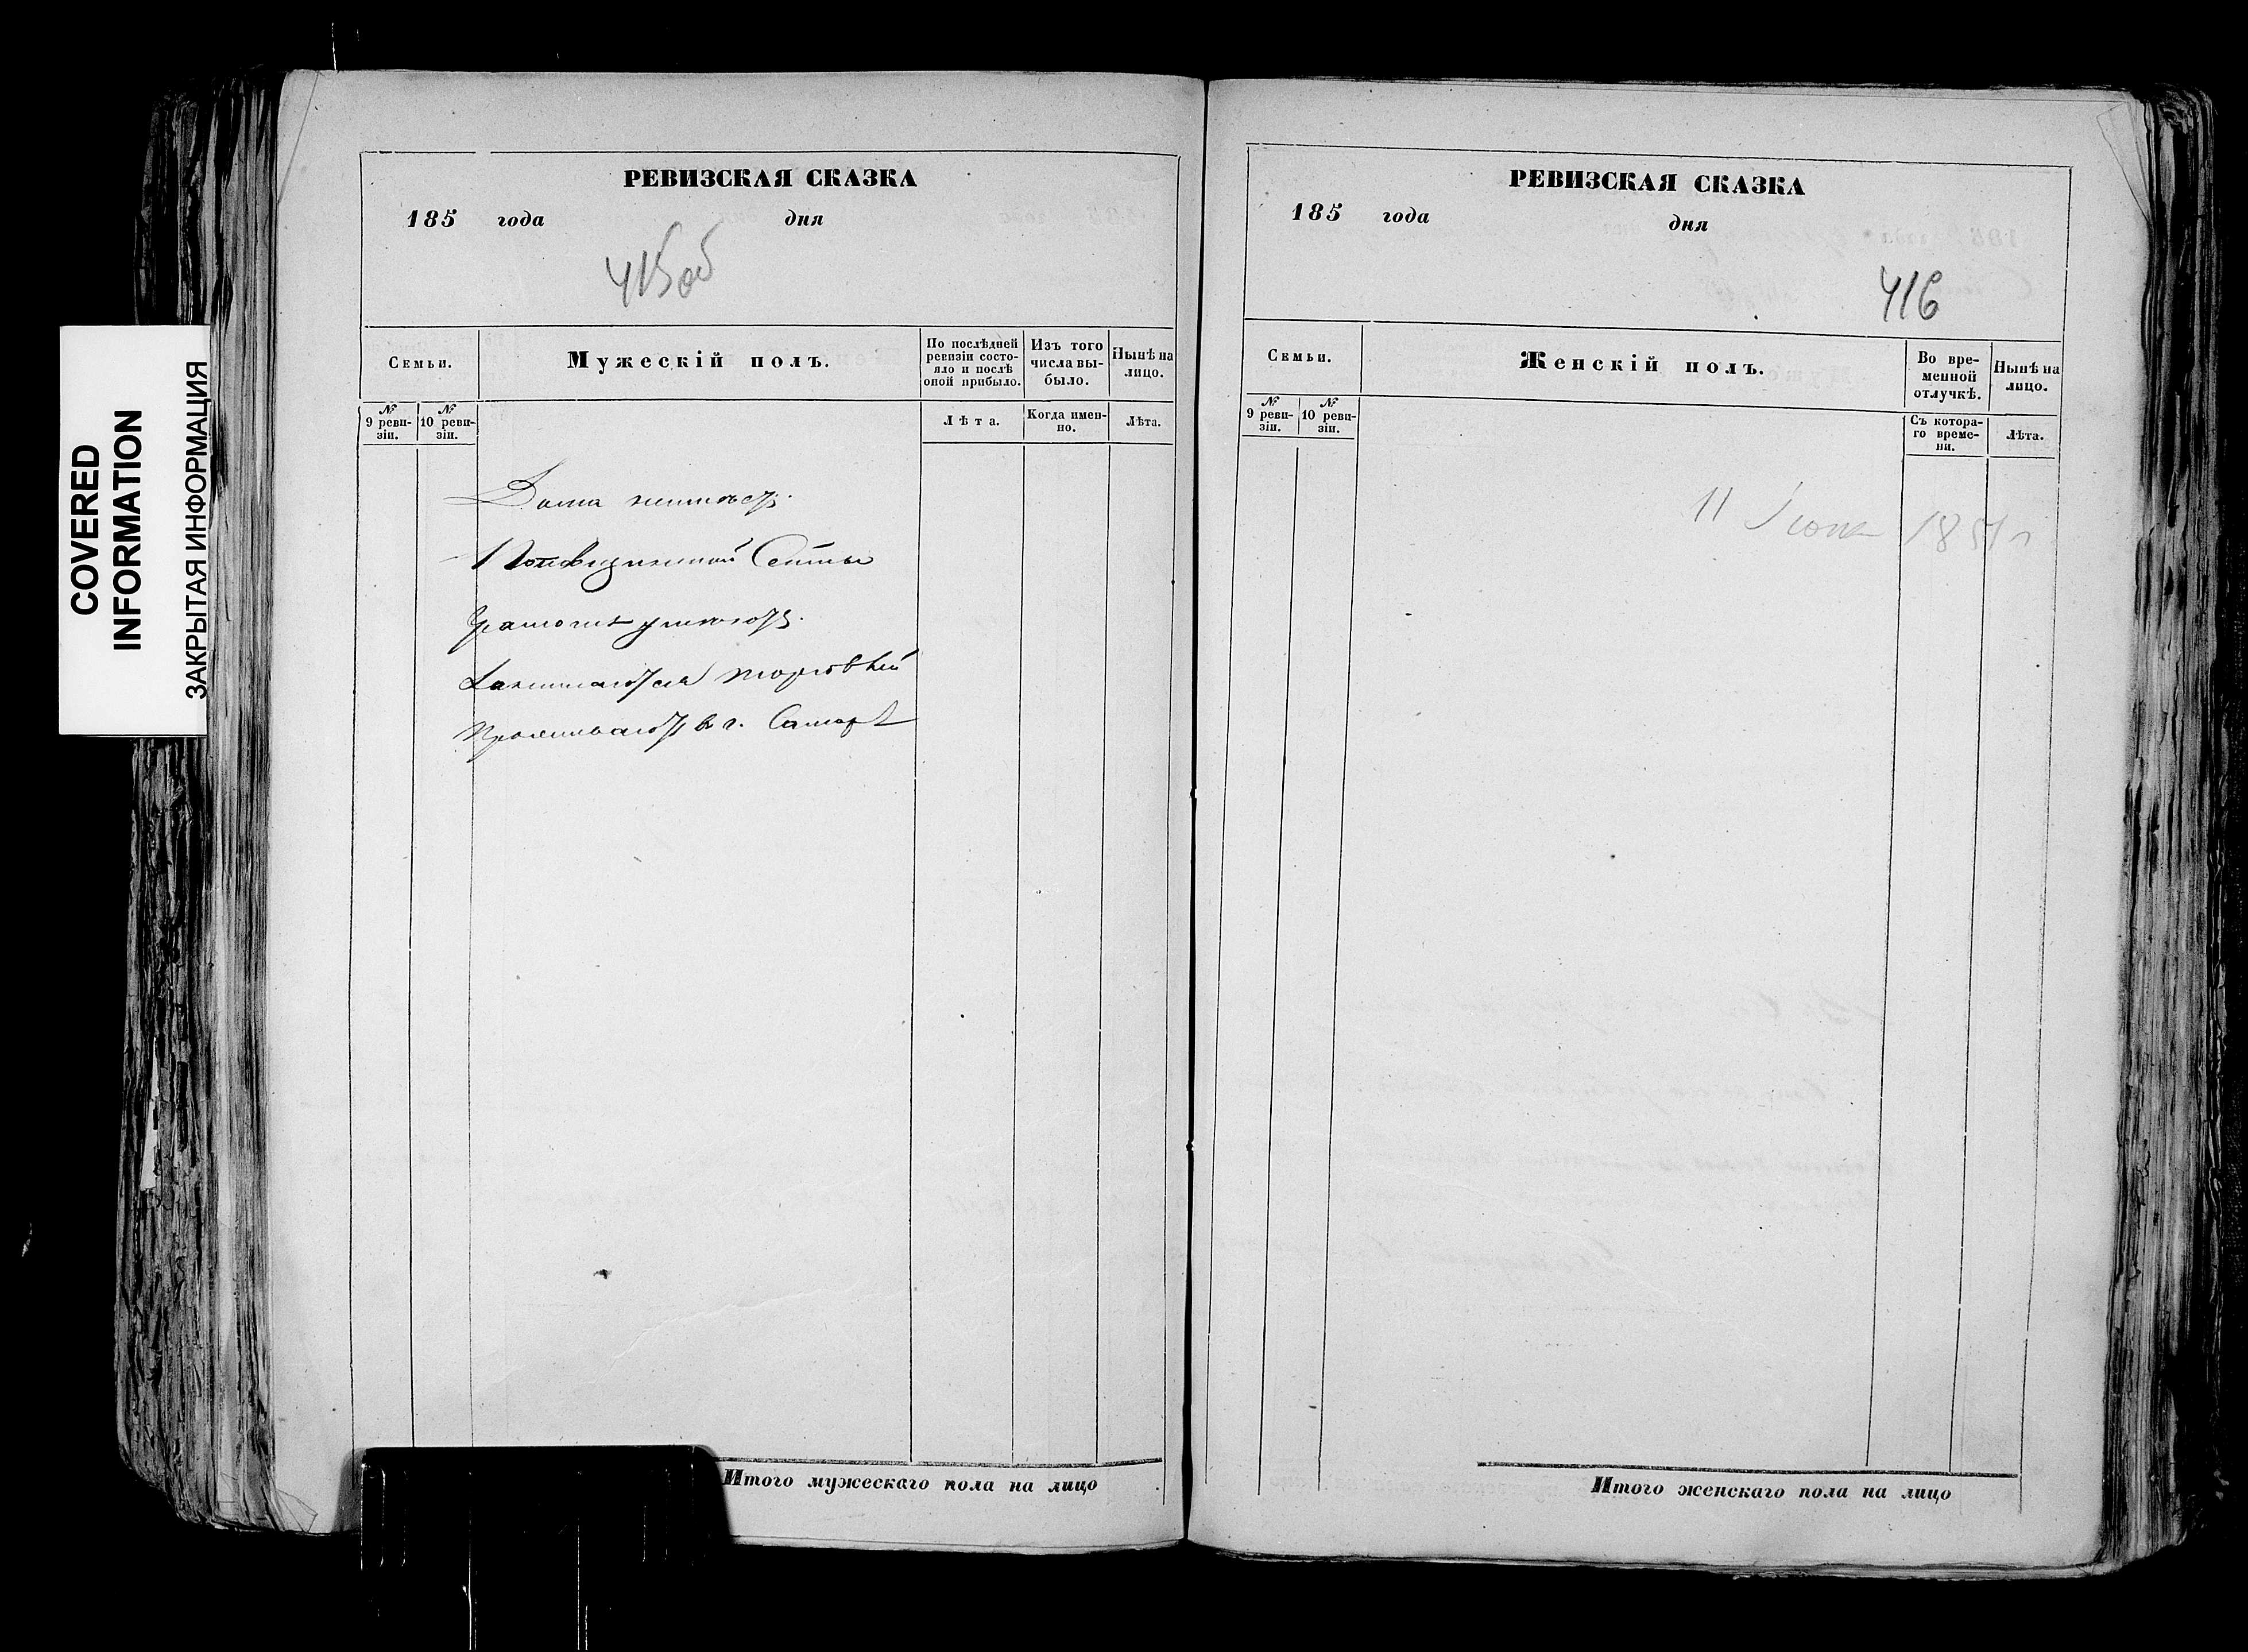 COVERED
INFORMATION
ЗАКРЫТАЯ ИНФОРМАЦИЯ
РЕВИЗСКАЯ СКАЗКА
185 года дня
415об
Семьи.
Мужескій полъ.
По послѣдней
ревизіи состо-
яло и послѣ
оной прибыло.
Изъ того
числа вы-
было.
Нынѣ на
лицо.
№
9 реви-
зіи.
№
10 реви-
зіи.
Лѣта.
Когда имен-
но.
Лѣта.
Дома неимѣетъ.
Секты
Грамоте умѣютъ.
Занимаются торговлей
Проживаютъ в г. Самарѣ
Итого мужескаго пола на лицо
РЕВИЗСКАЯ СКАЗКА
185 года дня
416
Семьи.
Женскій полъ.
Во вре-
менной
отлучкѣ.
Нынѣ на
лицо.
№
9 реви-
зіи.
№
10 реви-
зіи.
Съ котора-
го време-
ни.
Лѣта.
11 185 г
Итого женскаго пола на лицо